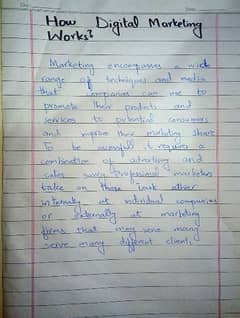 How Digital Marketing
Works?
Marketing encompasses a wide
range of techniques and media
that companies can use to
promote their products and
services to potential consumers
and improve their marketing share
To be successful it requires a
combination of advertising and
sales Professional marketers
take on these task either
internally at individual companies
or externally at marketing
firms that may serve many
serve many different clients